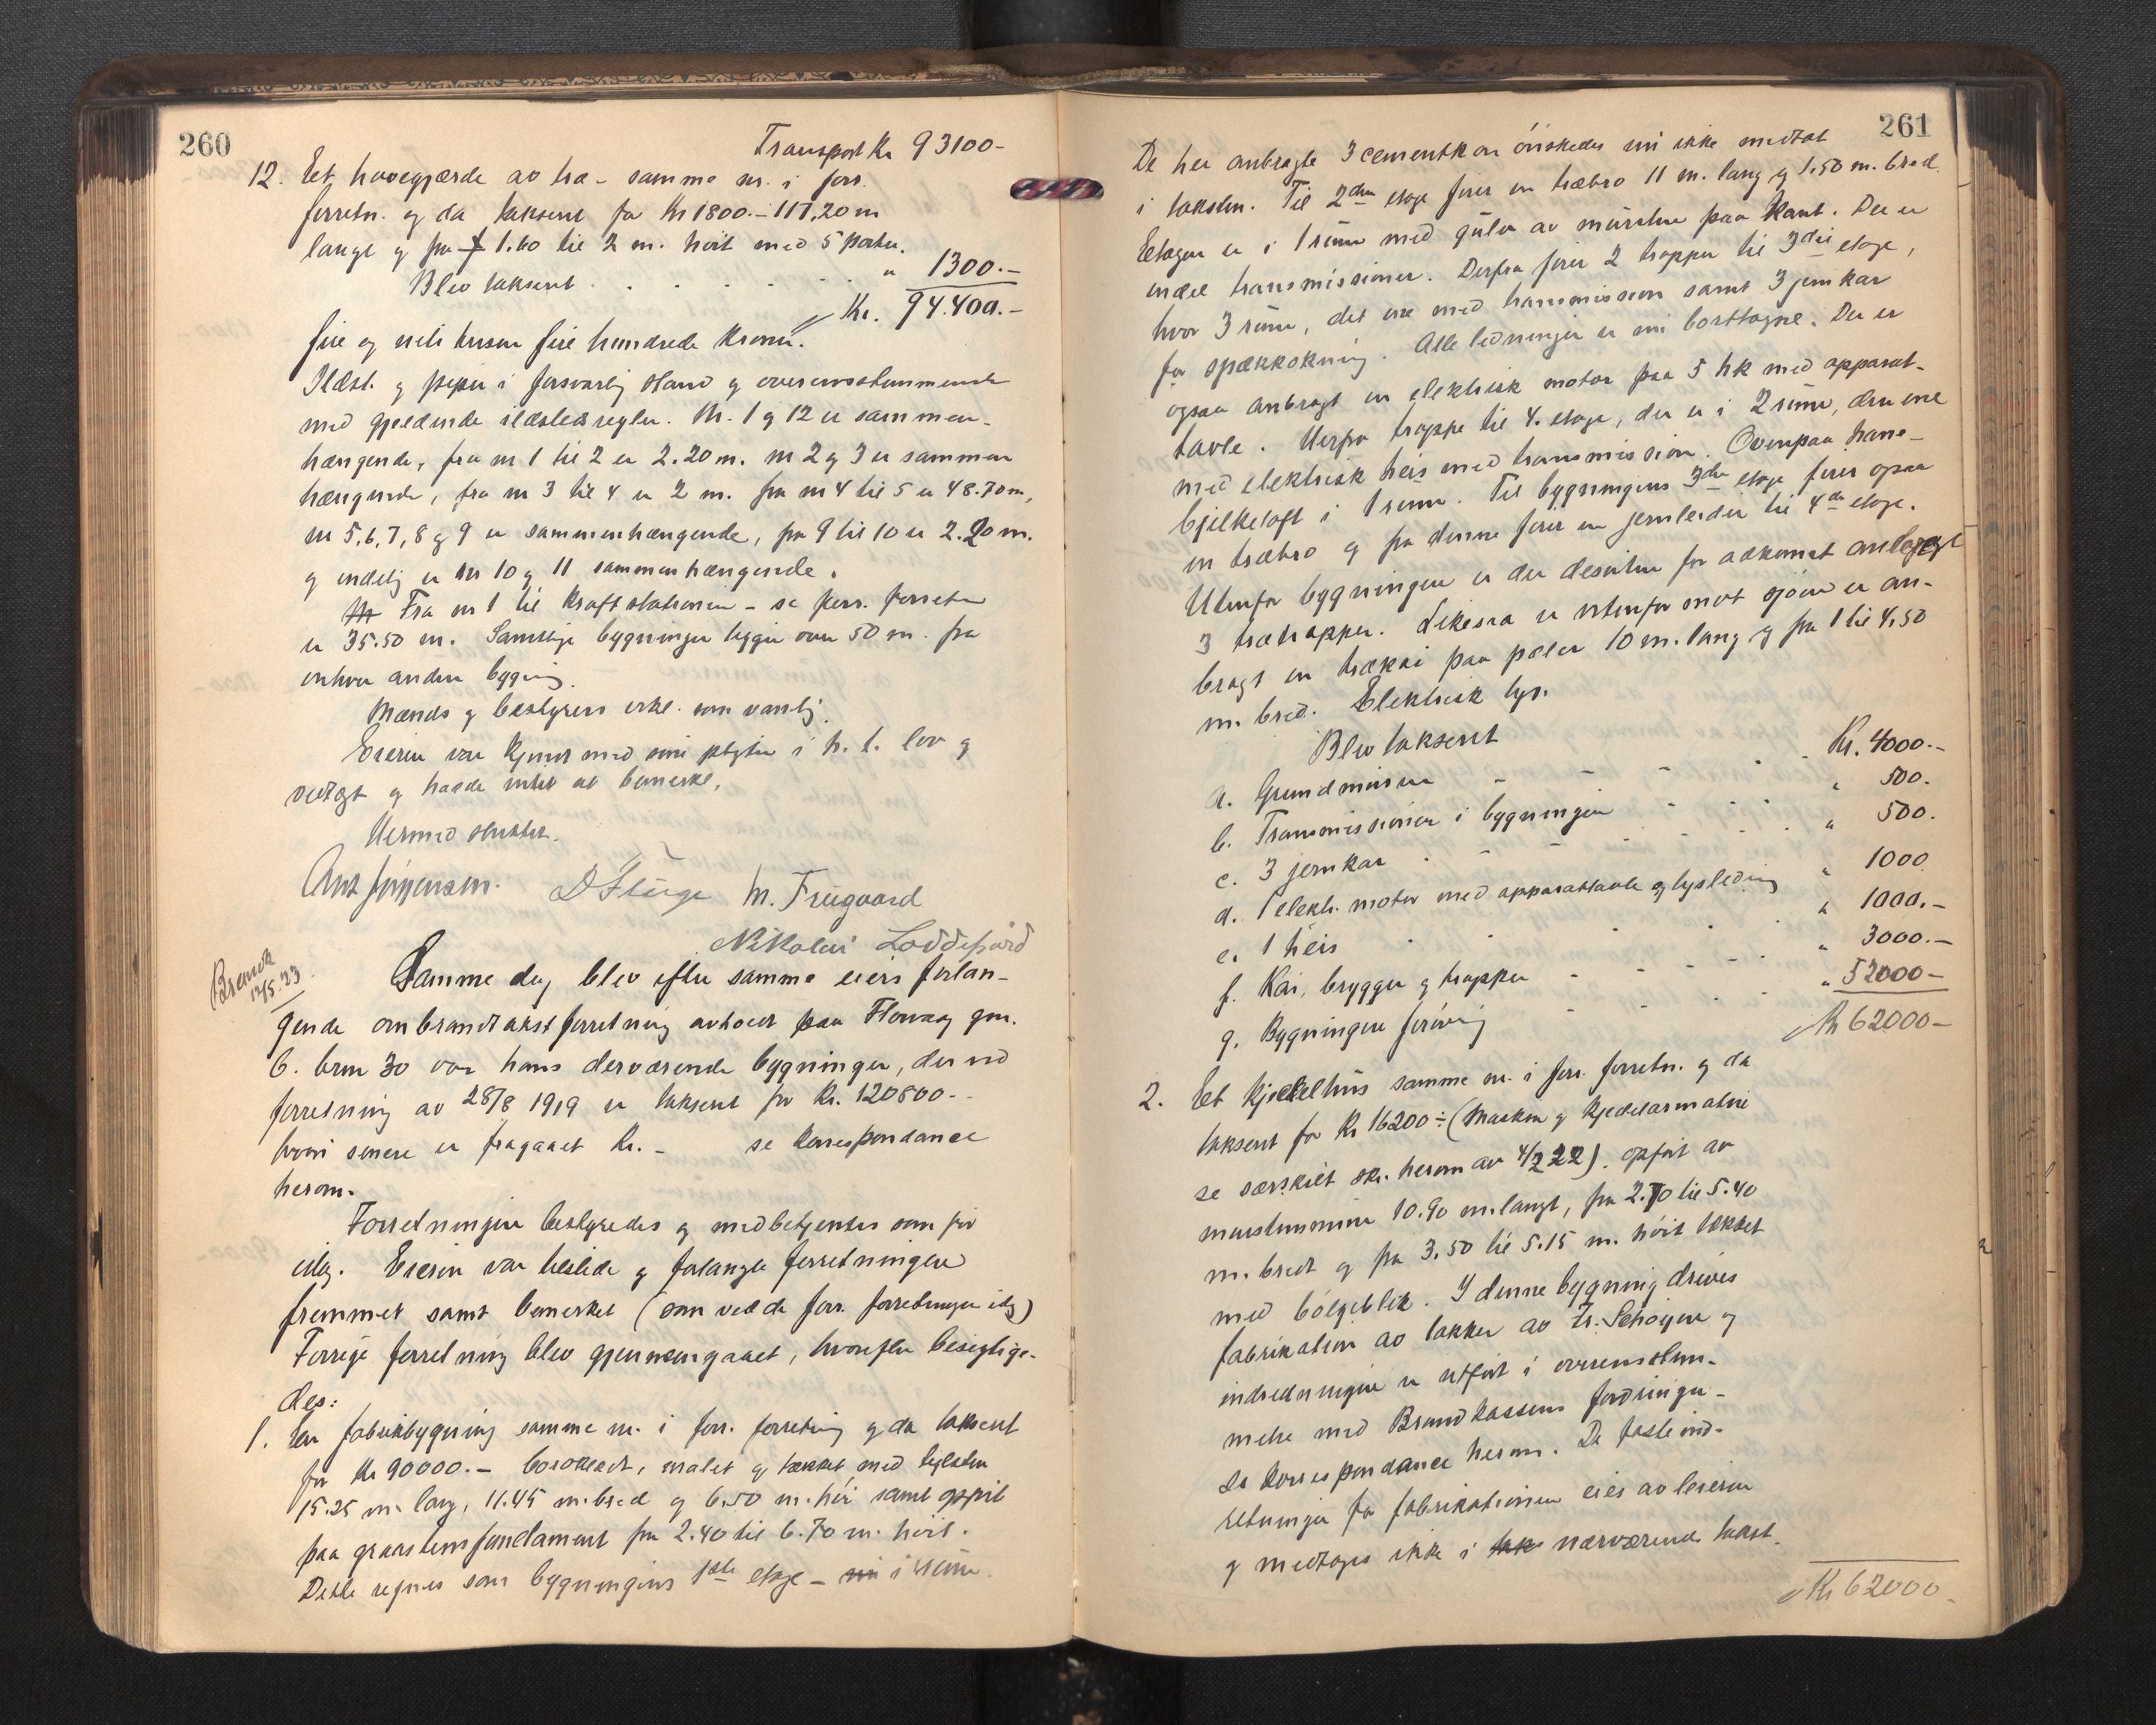 260
Transport Kr 93100-
12. Et havegjærde av træ - samme nr. i forr.
forretn. og da taksert for Kr 1800.- 117,20 m
langt og fra 1.60 til 2 m. høit med 5 porter.
Blev taksert . . . . . . " 1300.-
Kr. 94.400.-
fire og niti tusen fire hundrede kroner.
Ildst. og piper i forsvarlig stand og overensstemmende
med gjeldende ildstedsregler. Nr. 1 og 12 er sammen-
hængende, fra nr 1 til 2 er 2.20 m. nr 2 og 3 er sammen
hængende, fra nr 3 til 4 er 2 m. fra nr 4 til 5 er 48.70 m,
nr 5, 6, 7, 8 og 9 er sammenhængende, fra 9 til 10 er 2.20 m.
og endelig er nr 10 og 11 sammenhængende.
Fra nr 1 til kraftstationen - se forr. forretn
er 35.50 m. Samtlige bygninger ligger over 50 m. fra
enhver anden bygning.
Mænds og bestyrers erkl. som vanlig.
Eieren var kjendt med sine pligter i h. t. lov og
vedtægt og havde intet at bemerke.
Hermed sluttet.
Ant Jørgensen. D Stüge M. Friigaard
Nikolai Loddefjord
Brandk
12/5.23
Samme dag blev efter samme eiers forlan-
gende ombrandtakstforretning avholdt paa Florvaag gnr.
6. brnr 30 over hans derværende bygninger, der ved
forretning av 28/8 1919 er taksert for Kr. 120800.-
hvori senere er fragaaet Kr. - se korrespondance
herom.
Forretningen bestyredes og medbetjentes som før
idag. Eieren var tilstede og forlangte forretningen
fremmet samt bemerket (som ved de forr. forretninger idag)
Forrige forretning blev gjennemgaaet, hvorefter besigtige-
des:
1. En fabrikbygning samme nr. i forr. forretning og da taksert
for Kr 90000.- bordklædt, malet og tækket med teglsten
15.25 m. lang, 11.45 m. bred og 6.50 m. høi samt opført
paa graastensfundament fra 2.40 til 6.70 m. høit.
Dette regnes som bygningens 1ste etage - i 1 rum.
261
De her anbragte 3 cementkar ønskedes nu ikke medtat
i taksten. Til 2den etage fører en træbro 11 m. lang og 1.50 m. bred.
Etagen er i 1 rum med gulv av mursten paa kant. Der er
endel transmissioner. Derfra fører 2 trapper til 3die etage,
hvor 3 rum, det ene med transmission samt 3 jernkar
for spækkokning. Alle ledninger er nu borttagne. Der er
ogsaa anbragt en elektrisk motor paa 5 hk med apparat-
tavle. Herfra trappe til 4. etage, der er i 2 rum, den ene
med elektrisk heis med transmission. Ovenpaa hane-
bjelkeloft i 1 rum. Til bygningens 3die etage fører ogsaa
en træbro og fra denne fører en jernleider til 4de etage.
Utenfor bygningen er der desuten for adkomst anlagt
3 trætrapper. Likesaa er utenfor mot sjøen er an-
bragt en trækai paa pæler 10 m. lang og fra 1 til 4.50
m. bred. Elektrisk lys.
Blev taksert
a. Grundmuren - - - - . . Kr. 4000.-
b. Transmissionen i bygningen - - - . " 500.
c. 3 jernkar . - - - . . . " 500.
d. 1 elektr. motor med apparattavle og lysledning " 1000
e. 1 heis . . . . . " 1000.-
f. Kai, brygger og trapper - - - - - " 3000.-
g. Bygningen forøvrig - - - . . " 52000-
Kr 62000-
2. Et kjedelhus samme nr. i forr. forretn. og da
taksert for Kr 16200 ÷ (maskin og kjedelarmature
se særskilt skr. herom av 4/2 22). opført av
murstensmure 10.90 m. langt, fra 2.70 til 5.40
m. bredt og fra 3.50 til 5.15 m. høit tækket
med bølgeblik. I denne bygning drives
fabrikation av lakker av Fr. Schøyen og
indredningen er utført i overensstem-
melse med Brandkassens fordringer -
se korrespondance herom. De faste ind-
retninger for fabrikationen eies av leieren
og medtages ikke i nærværende takst.
Kr 62000-